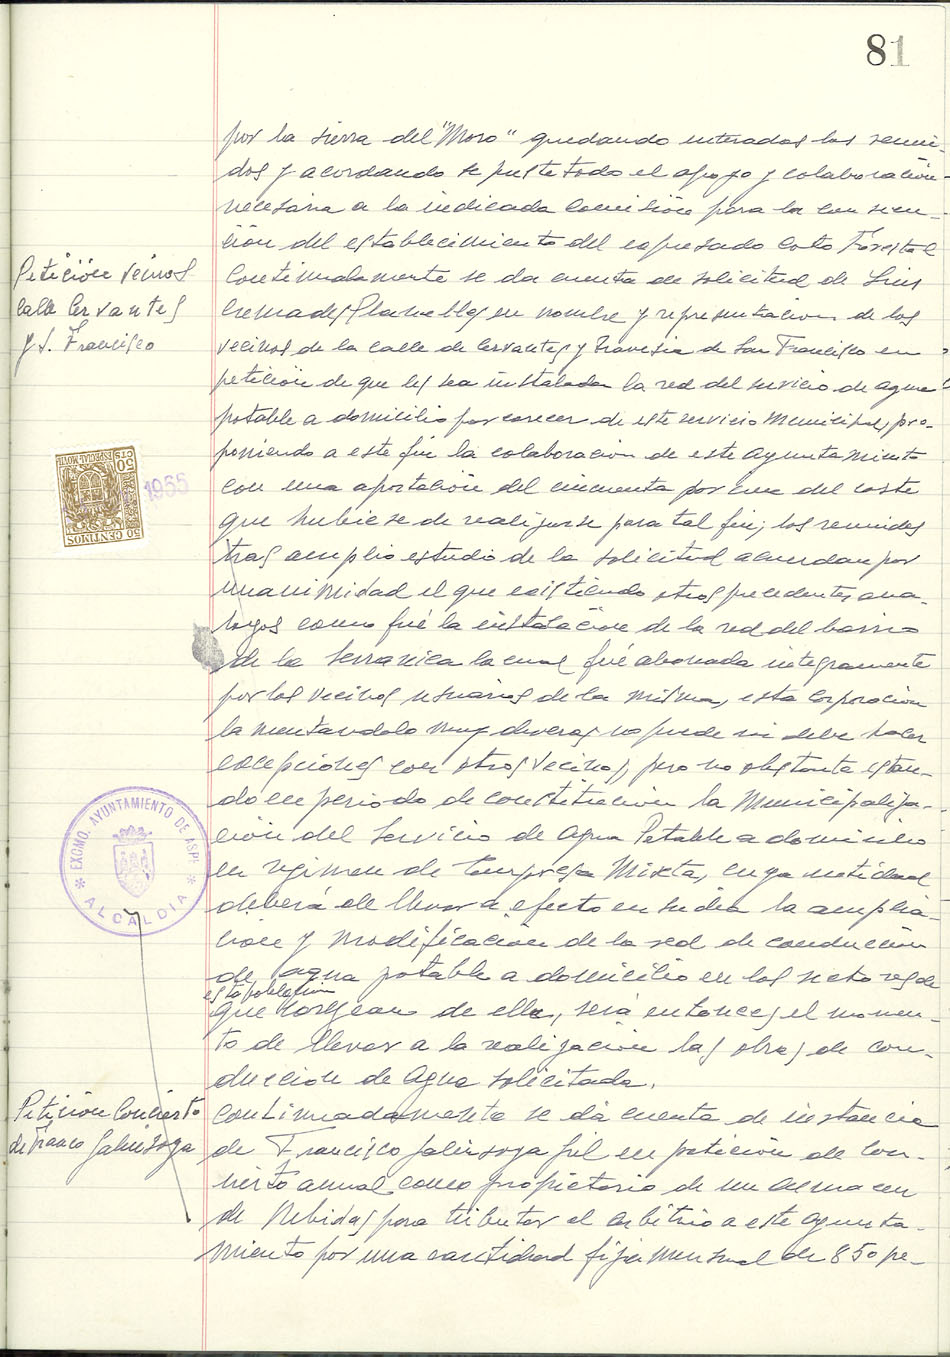 81
por la sierra del "Moro" quedando enterados los reuni-
dos y acordando se preste todo el apoyo y colaboración
necesaria a la indicada Comisión para la consecu-
ción del establecimiento del expresado Coto Forestal
Petición vecinos
calle Cervantes
y S. Francisco
Continuadamente se da cuenta de solicitud de Luis
Cremades en nombre y representacion de los
vecinos de la calle de Cervantes y travesia de San Francisco en
petición de que les sea instalada la red del servicio de agua
potable a domicilio por carecer de este servicio Municipal, pro-
poniendo a este fin la colaboracion de este Ayuntamiento
con una aportación del cincuenta por cien del coste
que hubiese de realizarse para tal fin; los reunidos
tras amplio estudio de la solicitud acuerdan por
unanimidad el que existiendo otros precedentes ana-
logos como fué la instalación de la red del barrio
de la Serranica la cual fué abonada integramente
por los vecinos usuarios de la misma, esta Corporacion
lamentandolo muy deveras no puede ni debe hacer
excepciones con otros vecinos, pero no obstante estan-
do en periodo de constitución la Municipaliza-
ción del Servicio de Agua Potable a domicilio
en regimen de Empresa Mixta, cuya entidad
deberá de llevar a efecto en su dia la amplia-
cion y modificación de la red de conducción
de agua potable a domicilio en los sectores de
esta poblacion
que carezcan de ella, será entonces el momen-
to de llevar a la realización las obras de con-
duccion de Agua solicitada.
Petición Concierto
de Franco Galinsoga
Continuadamente se dá cuenta de instancia
de Francisco Galinsoga Gil en petición de Con-
cierto anual como propietario de un almacen
de Bebidas para tributar el arbitrio a este Ayunta-
miento por una cantidad fija mensual de 850 pe-
50 CENTIMOS
ESPECIAL MOVIL
50 CTS
1955
EXCMO. AYUNTAMIENTO DE ASPE
* ALCALDIA *